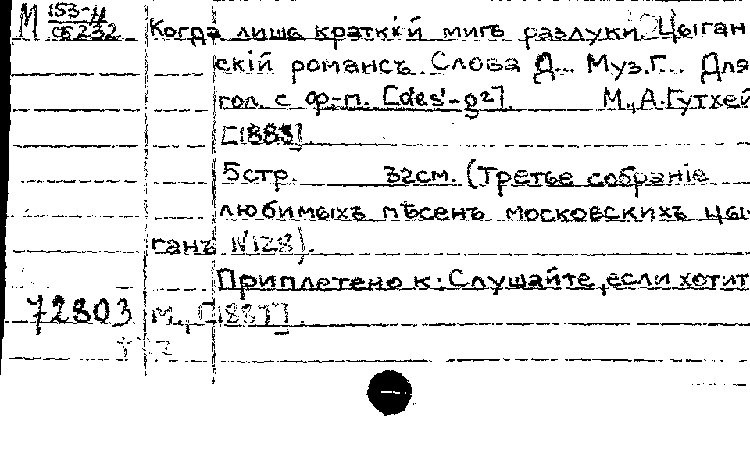 М 153-11/сб232 Когда лишь краткій мигъ разлуки. Цыган
скій романсъ. Слова Д... Муз. Г... Для
гол. с ф-п. [des¹-g²]. М., А. Гутхей
[1883]
5 стр. 32 см. (Третье собраніе
любимыхъ пѣсенъ московскихъ цы-
ганъ N 128).
Приплетено к: Слушайте, если хотит
72803 М., [1887].